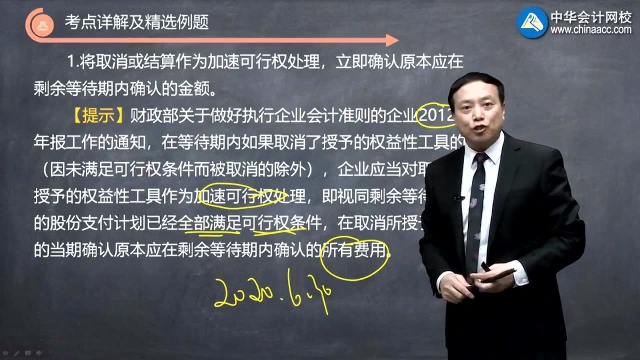 考点详解及精选例题
中华会计网校
www.chinaacc.com
1.将取消或结算作为加速可行权处理，立即确认原本应在
剩余等待期内确认的金额。
【提示】财政部关于做好执行企业会计准则的企业2012
年报工作的通知，在等待期内如果取消了授予的权益性工具的
（因未满足可行权条件而被取消的除外），企业应当对取
授予的权益性工具作为加速可行权处理，即视同剩余等待
的股份支付计划已经全部满足可行权条件，在取消所授
的当期确认原本应在剩余等待期内确认的所有费用。
2020.6.30